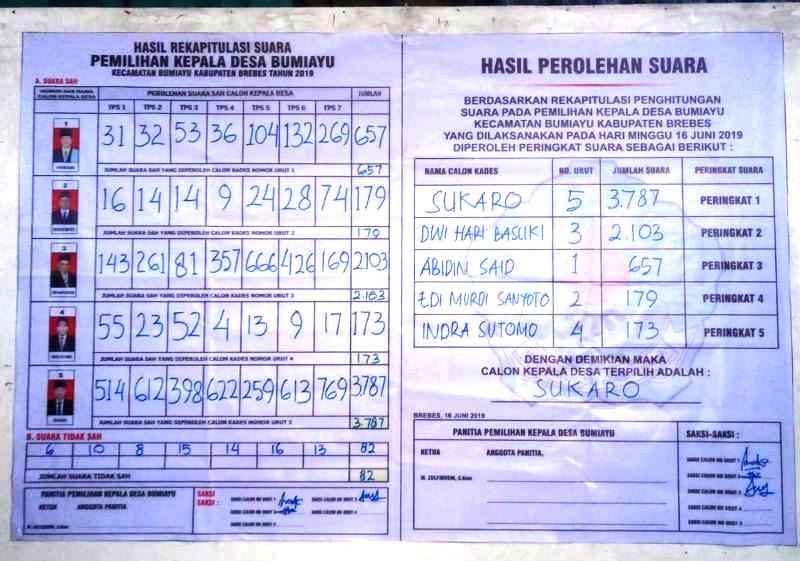 HASIL REKAPITULASI SUARA
PEMILIHAN KEPALA DESA BUMIAYU
KECAMATAN BUMIAYU KABUPATEN BREBES TAHUN 2019
A. SUARA SAH
PEROLEHAN SUARA SAH CALON KEPALA DESA JUMLAH
CALON KEPALA DESA
TPS 1 TPS 2 TPS 3 TPS 4 TPS 5 TPS 6 TPS 7
1 31 32 53 36 104 132 269 657
JUMLAH SUARA SAH YANG DIPEROLEH CALON KADES NOMOR URUT 1 657
2 16 14 14 9 24 28 74 179
JUMLAH SUARA SAH YANG DIPEROLEH CALON KADES NOMOR URUT 2 179
3 143 261 81 357 666 426 169 2103
JUMLAH SUARA SAH YANG DIPEROLEH CALON KADES NOMOR URUT 3 2.103
4 55 23 52 4 13 9 17 173
JUMLAH SUARA SAH YANG DIPEROLEH CALON KADES NOMOR URUT 4 173
5 514 612 398 622 259 613 769 3.787
JUMLAH SUARA SAH YANG DIPEROLEH CALON KADES NOMOR URUT 5 3.787
B. SUARA TIDAK SAH
6 10 8 15 14 16 13 82
JUMLAH SUARA TIDAK SAH 82
PANITIA PEMILIHAN KEPALA DESA BUMIAYU
KETUA ANGGOTA PANITIA
SAKSI
SAKSI :
SAKSI CALON NO URUT 1
SAKSI CALON NO URUT 2
SAKSI CALON NO URUT 3
SAKSI CALON NO URUT 4
SAKSI CALON NO URUT 5
HASIL PEROLEHAN SUARA
BERDASARKAN REKAPITULASI PENGHITUNGAN
SUARA PADA PEMILIHAN KEPALA DESA BUMIAYU
KECAMATAN BUMIAYU KABUPATEN BREBES
YANG DILAKSANAKAN PADA HARI MINGGU 16 JUNI 2019
DIPEROLEH PERINGKAT SUARA SEBAGAI BERIKUT :
NAMA CALON KADES NO. URUT JUMLAH SUARA PERINGKAT SUARA
SUKARO 5 3.787 PERINGKAT 1
DWI HARI BASUKI 3 2.103 PERINGKAT 2
ABIDIN SAID 1 657 PERINGKAT 3
EDI MURDI SANYOTO 2 179 PERINGKAT 4
INDRA SUTOMO 4 173 PERINGKAT 5
DENGAN DEMIKIAN MAKA
CALON KEPALA DESA TERPILIH ADALAH :
SUKARO
BREBES, 16 JUNI 2019
PANITIA PEMILIHAN KEPALA DESA BUMIAYU
SAKSI-SAKSI :
KETUA ANGGOTA PANITIA.
SAKSI CALON NO URUT 1
SAKSI CALON NO URUT 2
SAKSI CALON NO URUT 3
SAKSI CALON NO URUT 4
SAKSI CALON NO URUT 5